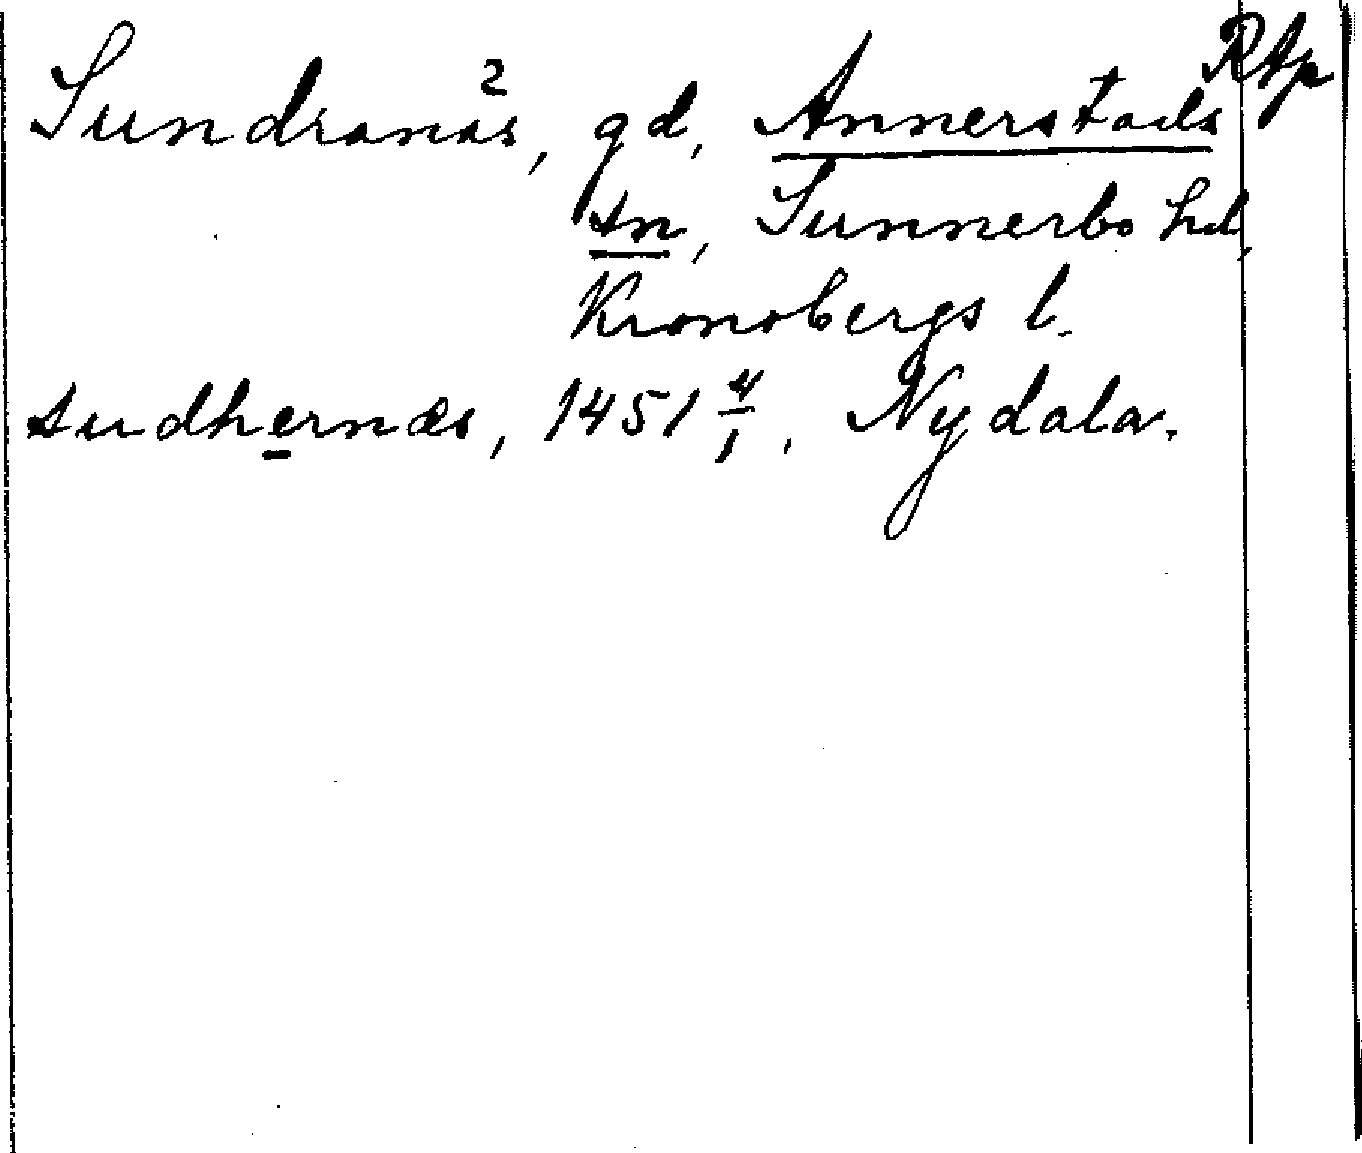 Rtp
Sundranäs², gd, Annerstads
sn, Sunnerbo hd,
Kronobergs l.
sudhernæs, 1451 4/1, Nydala.